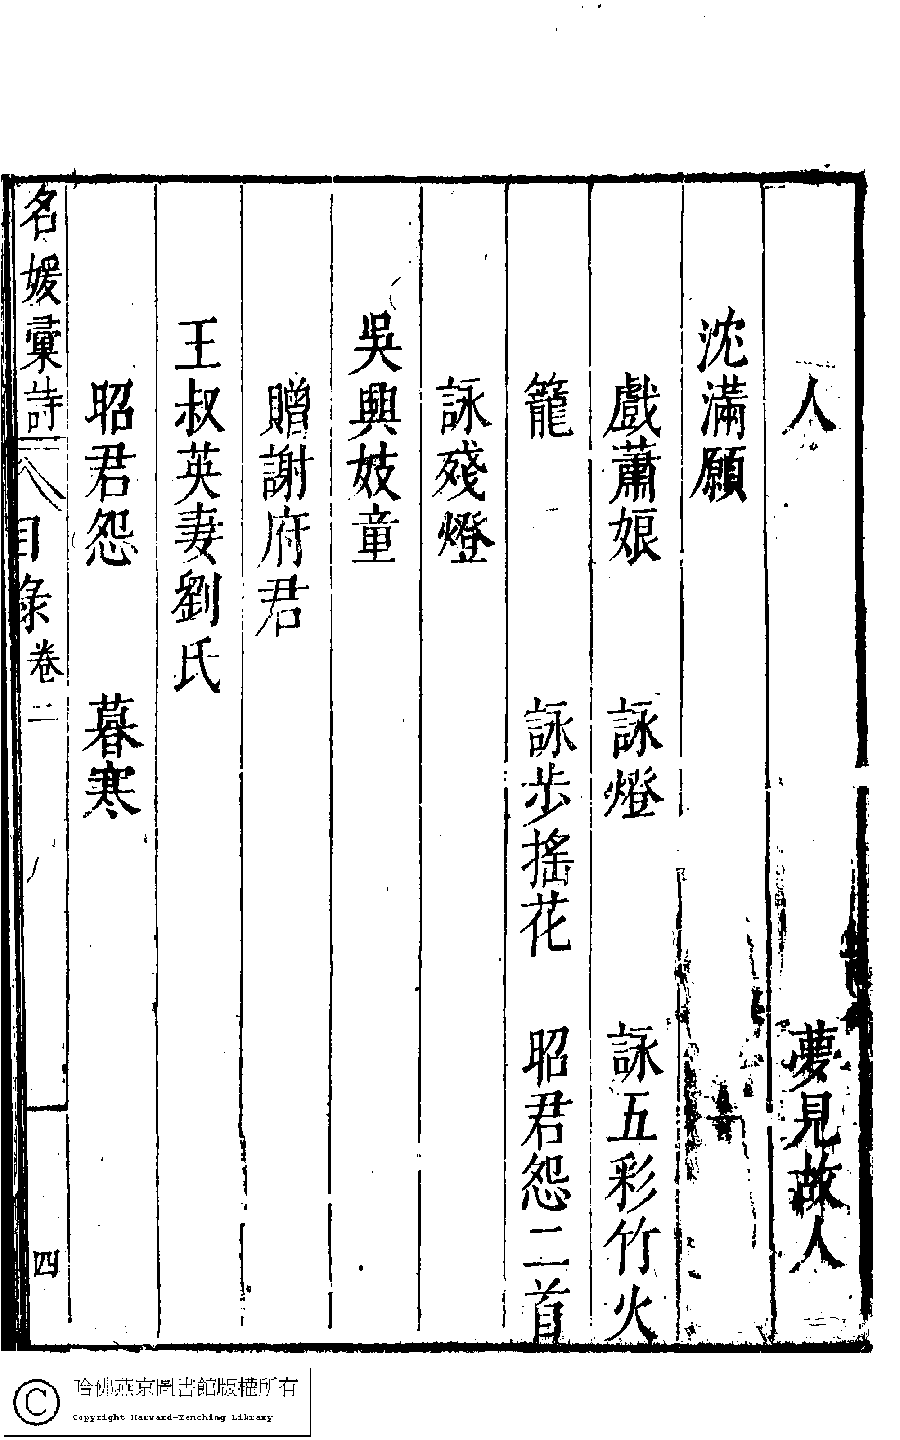 人　夢見故人
沈滿願
戲蕭娘　詠燈　詠五彩竹火
籠　詠步搖花　昭君怨二首
詠殘燈
吳興妓童
贈謝府君
王叔英妻劉氏
昭君怨　暮寒
名媛彙詩　目錄卷二　四
哈佛燕京圖書館版權所有
Copyright Harvard-Yenching Library